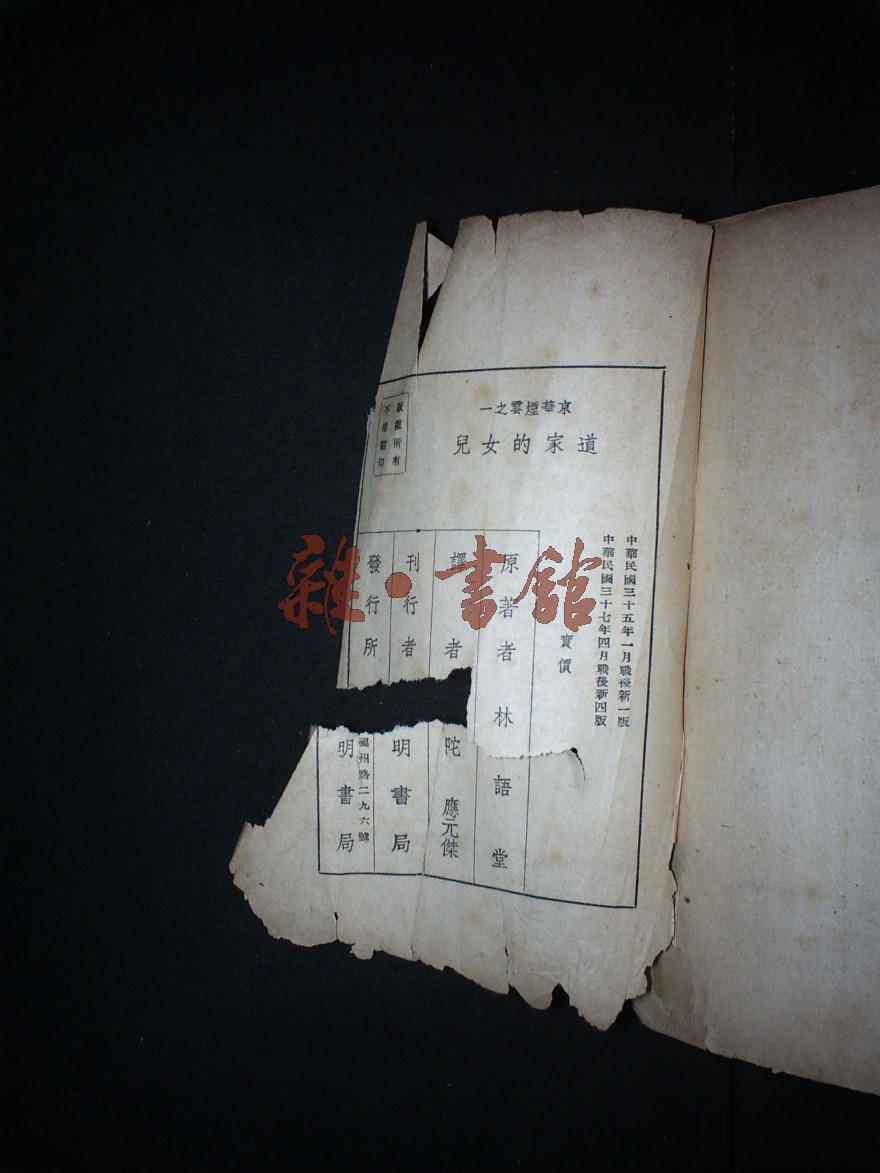 京華煙雲之一
道家的女兒
中華民國三十五年一月戰後新一版
中華民國三十七年四月戰後新四版
實價
原著者 林語堂
譯者 陀 應元傑
刊行者 明書局
發行所 福州路二九六號 明書局
版權所有
不准翻印
雜·書館